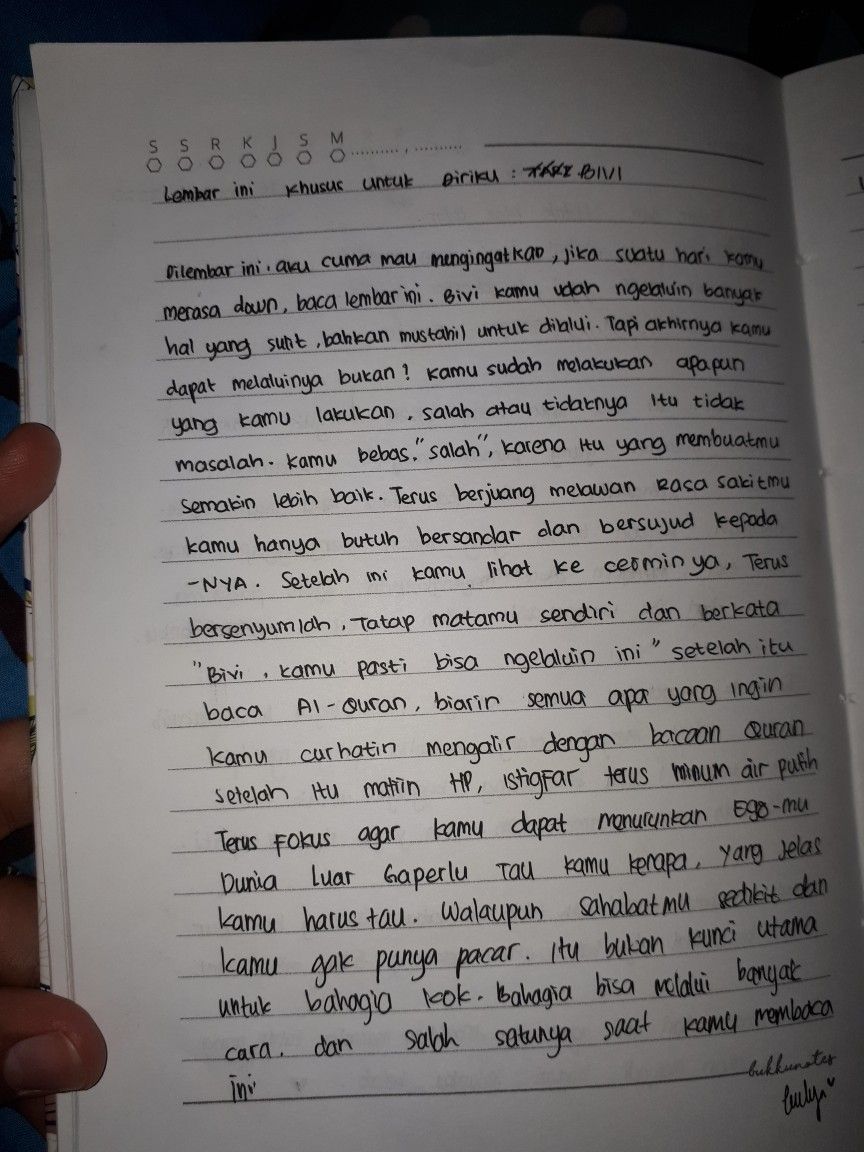 S S R K J S M .......... , ..........
Lembar ini khusus untuk Diriku : BIVI
Dilembar ini. aku cuma mau mengingatkan, jika suatu hari kamu
merasa down, baca lembar ini. Bivi kamu udah ngelaluin banyak
hal yang sulit, bahkan mustahil untuk dilalui. Tapi akhirnya kamu
dapat melaluinya bukan? kamu sudah melakukan apapun
yang kamu lakukan, salah atau tidaknya itu tidak
masalah. kamu bebas."salah", karena itu yang membuatmu
semakin lebih baik. Terus berjuang melawan Rasa sakitmu
kamu hanya butuh bersandar dan bersujud kepada
-NYA. Setelah ini kamu lihat ke cermin ya, Terus
bersenyumlah, Tatap matamu sendiri dan berkata
"Bivi, kamu pasti bisa ngelaluin ini" setelah itu
baca Al-Quran, biarin semua apa yang ingin
kamu curhatin mengalir dengan bacaan Quran
setelah itu matiin HP, istigfar terus minum air putih
Terus Fokus agar kamu dapat menurunkan Ego-mu
Dunia luar Gaperlu Tau kamu kenapa, yang Jelas
kamu harus tau. Walaupun sahabatmu sedikit dan
kamu gak punya pacar. itu bukan kunci utama
untuk bahagia kok. Bahagia bisa melalui banyak
cara. dan salah satunya saat kamu membaca
ini